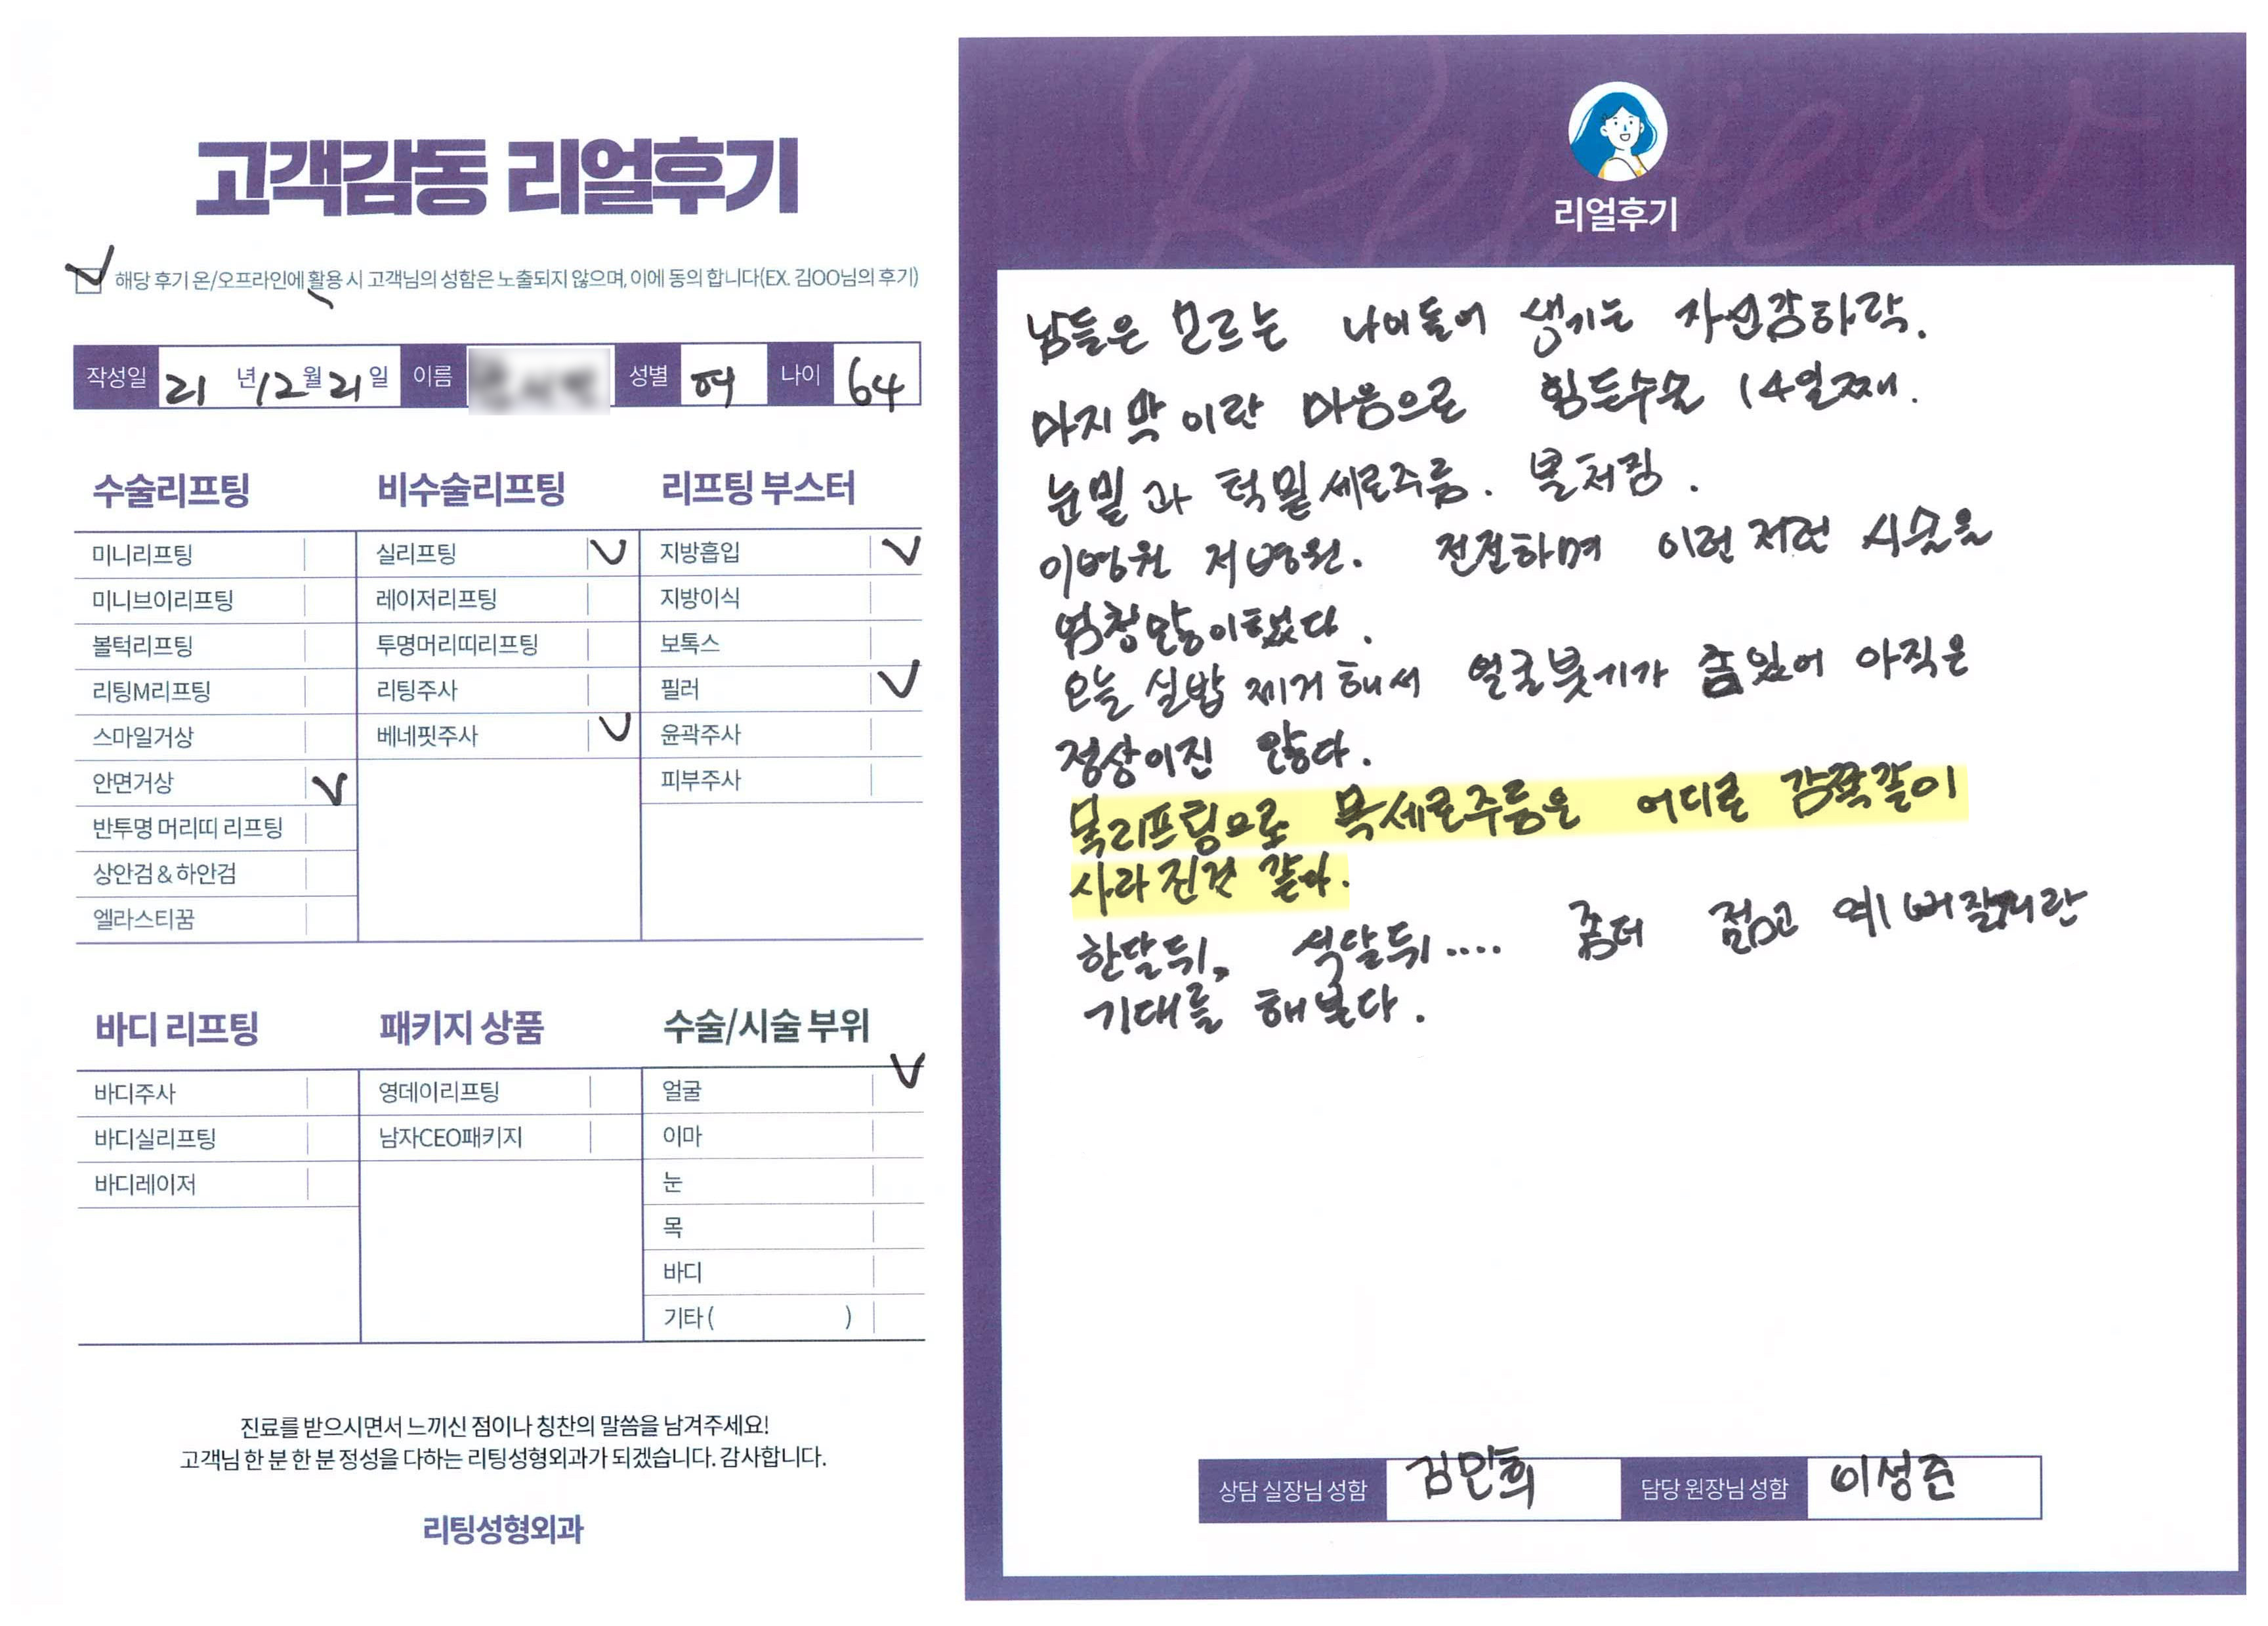 고객감동 리얼후기
해당 후기 온/오프라인에 활용 시 고객님의 성함은 노출되지 않으며, 이에 동의 합니다(EX. 김OO님의 후기)
작성일 21 년 12 월 21 일 이름 성별 여 나이 64
수술리프팅
미니리프팅
미니브이리프팅
볼턱리프팅
리팅M리프팅
스마일거상
안면거상
반투명 머리띠 리프팅
상안검 & 하안검
엘라스티꿈
비수술리프팅
실리프팅
레이저리프팅
투명머리띠리프팅
리팅주사
베네핏주사
리프팅 부스터
지방흡입
지방이식
보톡스
필러
윤곽주사
피부주사
바디 리프팅
바디주사
바디실리프팅
바디레이저
패키지 상품
영데이리프팅
남자CEO패키지
수술/시술 부위
얼굴
이마
눈
목
바디
기타 ( )
진료를 받으시면서 느끼신 점이나 칭찬의 말씀을 남겨주세요!
고객님 한 분 한 분 정성을 다하는 리팅성형외과가 되겠습니다. 감사합니다.
리팅성형외과
Review
리얼후기
남들은 모르는 나이들어 생기는 자신감하락.
마지막이란 마음으로 힘든수술 14일째.
눈밑과 턱밑세로주름. 볼처짐.
이병원 저병원. 전전하며 이런저런 시술을
엄청많이했었다.
오늘 실밥 제거해서 얼굴붓기가 좀있어 아직은
정상이진 않다.
목리프팅으로 목세로주름은 어디로 감쪽같이
사라진것 같다.
한달뒤, 석달뒤.... 좀더 젊고 예뻐질거란
기대를 해본다.
상담 실장님 성함 김민희 담당 원장님 성함 이성준